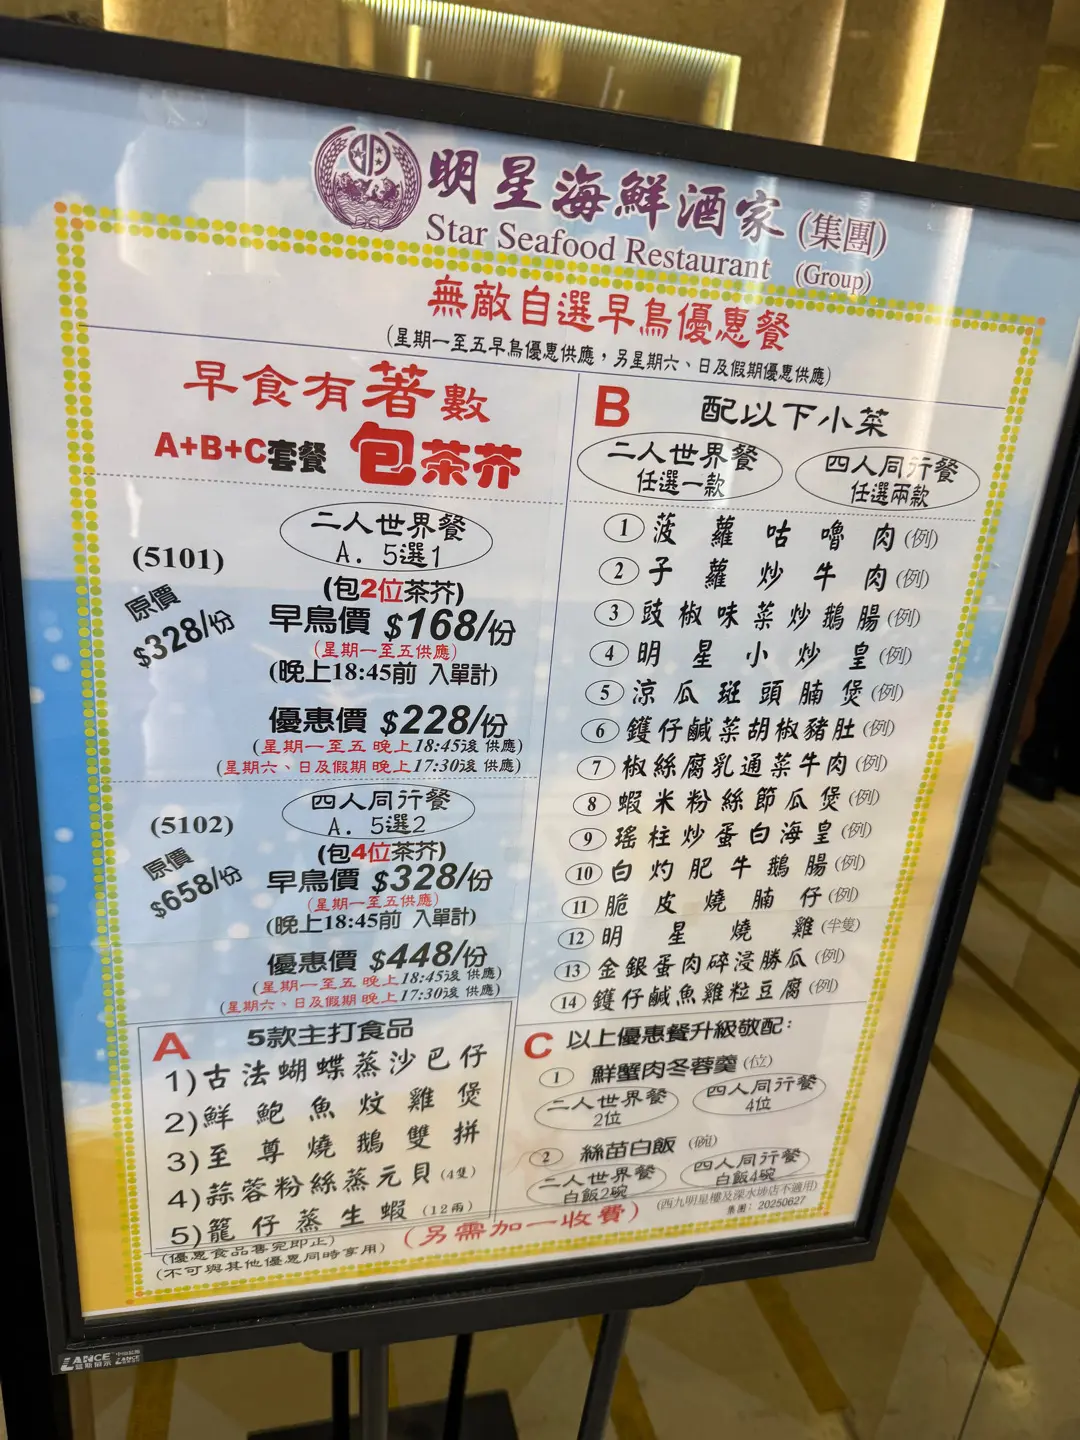 明星海鮮酒家(集團)
Star Seafood Restaurant (Group)
無敵自選早鳥優惠餐
(星期一至五早鳥優惠供應，另星期六、日及假期優惠供應)
早食有著數
A+B+C套餐 包茶芥
二人世界餐
A. 5選1
(5101)
原價
$328/份
(包2位茶芥)
早鳥價 $168/份
(星期一至五供應)
(晚上18:45前 入單計)
優惠價 $228/份
(星期一至五 晚上18:45後 供應)
(星期六、日及假期 晚上17:30後 供應)
四人同行餐
A. 5選2
(5102)
原價
$658/份
(包4位茶芥)
早鳥價 $328/份
(星期一至五供應)
(晚上18:45前 入單計)
優惠價 $448/份
(星期一至五 晚上18:45後 供應)
(星期六、日及假期 晚上17:30後 供應)
A 5款主打食品
1)古法蝴蝶蒸沙巴仔
2)鮮鮑魚炆雞煲
3)至尊燒鵝雙拼
4)蒜蓉粉絲蒸元貝(4隻)
5)籠仔蒸生蝦(12兩)
(優惠食品售完即止)
(不可與其他優惠同時享用)
B 配以下小菜
二人世界餐
任選一款
四人同行餐
任選兩款
1 菠蘿咕嚕肉(例)
2 子蘿炒牛肉(例)
3 豉椒味菜炒鵝腸(例)
4 明星小炒皇(例)
5 涼瓜斑頭腩煲(例)
6 鑊仔鹹菜胡椒豬肚(例)
7 椒絲腐乳通菜牛肉(例)
8 蝦米粉絲節瓜煲(例)
9 瑤柱炒蛋白海皇(例)
10 白灼肥牛鵝腸(例)
11 脆皮燒腩仔(例)
12 明星燒雞(半隻)
13 金銀蛋肉碎浸勝瓜(例)
14 鑊仔鹹魚雞粒豆腐(例)
C 以上優惠餐升級敬配：
1 鮮蟹肉冬蓉羹(位)
二人世界餐
2位
四人同行餐
4位
2 絲苗白飯(碗)
二人世界餐
白飯2碗
四人同行餐
白飯4碗
(西九明星樓及深水埗店不適用)
(另需加一收費)
集團：20250627
LANCE